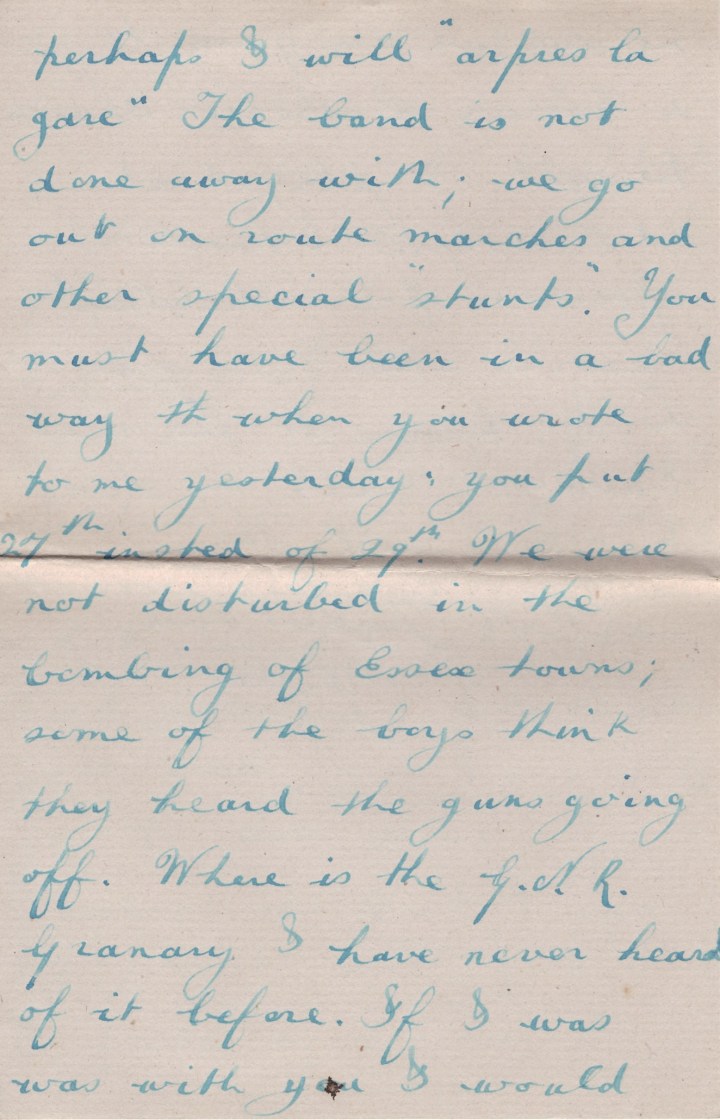 perhaps I will "arpres la
gare" The band is not
done away with; we go
out on route marches and
other special "stunts". You
must have been in a bad
way th when you wrote
to me yesterday; you put
27th insted of 29th. We were
not disturbed in the
bombing of Essex towns;
some of the boys think
they heard the guns going
off. Where is the G.N.R.
Granary I have never heard
of it before. If I was
was with you I would